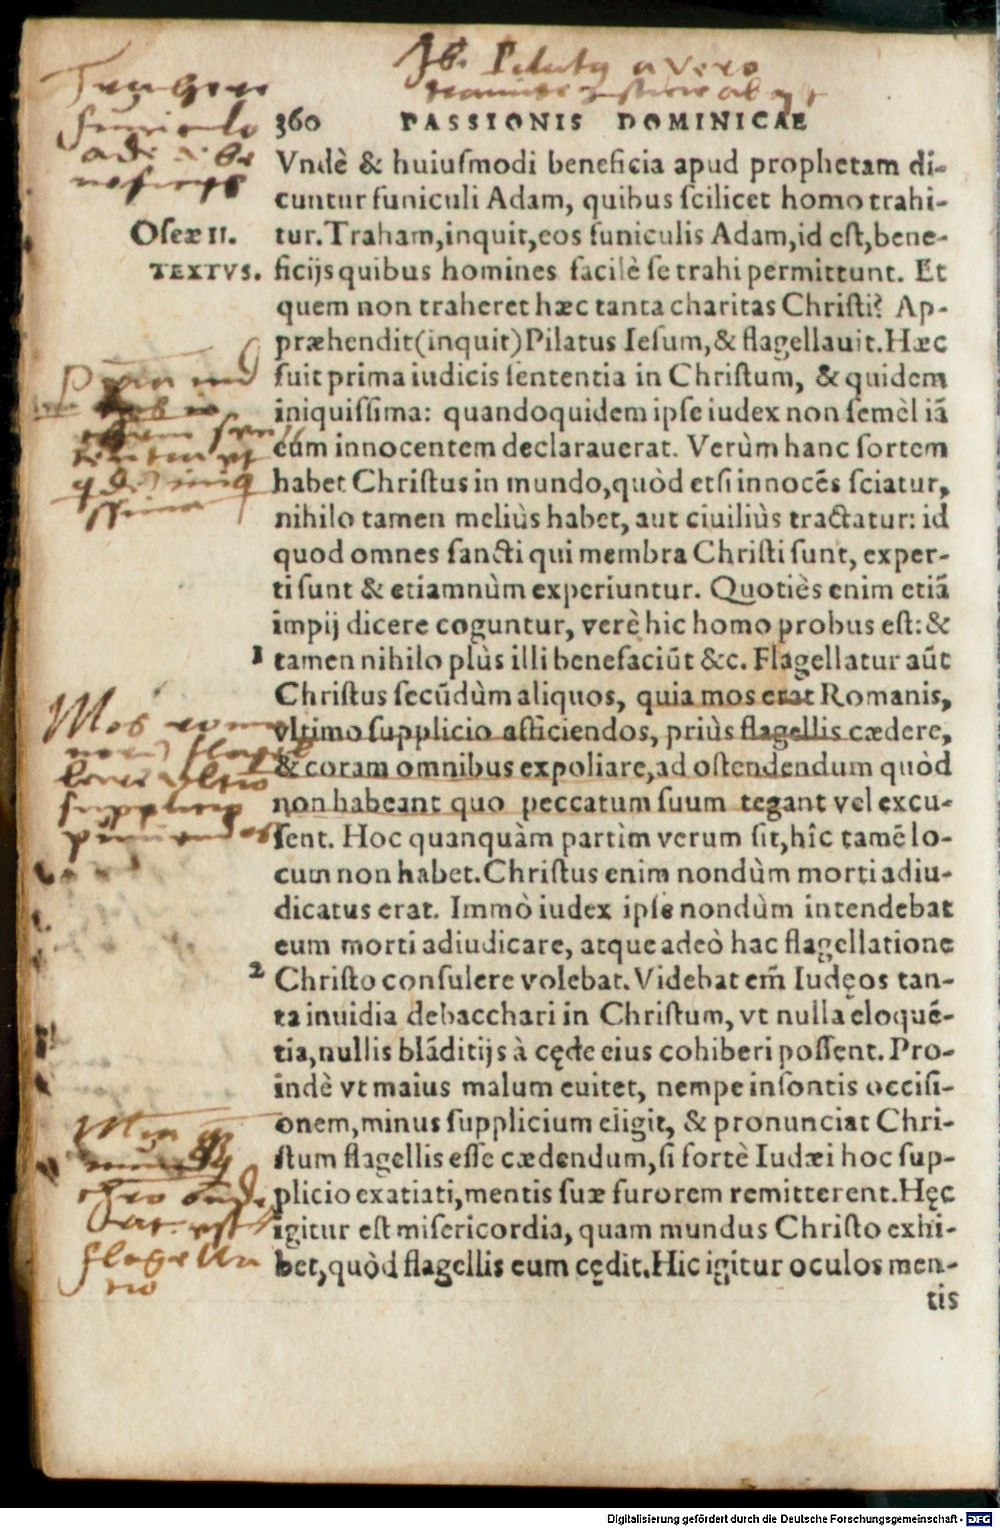 360 PASSIONIS DOMINICAE
Vndè & huiuſmodi beneficia apud prophetam di-
cuntur funiculi Adam, quibus ſcilicet homo trahi-
Oſeæ 11.
tur. Traham, inquit, eos funiculis Adam, id eſt, bene-
TEXTVS.
ficijs quibus homines facilè ſe trahi permittunt. Et
quem non traheret hæc tanta charitas Chriſti? Ap-
præhendit (inquit) Pilatus Ieſum, & flagellauit. Hæc
fuit prima iudicis ſententia in Chriſtum, & quidem
iniquiſſima: quandoquidem ipſe iudex non ſemèl iã
eum innocentem declarauerat. Verùm hanc ſortem
habet Chriſtus in mundo, quòd etſi innocẽs ſciatur,
nihilo tamen meliùs habet, aut ciuiliùs tractatur: id
quod omnes ſancti qui membra Chriſti ſunt, exper-
ti ſunt & etiamnùm experiuntur. Quotiès enim etiã
impij dicere coguntur, verè hic homo probus eſt: &
1 tamen nihilo plùs illi benefaciũt &c. Flagellatur aũt
Chriſtus ſecũdùm aliquos, quia mos erat Romanis,
vltimo ſupplicio afficiendos, priùs flagellis cædere,
& coram omnibus expoliare, ad oſtendendum quòd
non habeant quo peccatum ſuum tegant vel excu-
ſent. Hoc quanquàm partìm verum ſit, hîc tamẽ lo-
cum non habet. Chriſtus enim nondùm morti adiu-
dicatus erat. Immò iudex ipſe nondùm intendebat
eum morti adiudicare, atque adeò hac flagellatione
2 Chriſto conſulere volebat. Videbat em̃ Iudęos tan-
ta inuidia debacchari in Chriſtum, vt nulla eloquẽ-
tia, nullis blãditijs à cęde eius cohiberi poſſent. Pro-
indè vt maius malum euitet, nempe inſontis occiſi-
onem, minus ſupplicium eligit, & pronunciat Chri-
ſtum flagellis eſſe cædendum, ſi fortè Iudæi hoc ſup-
plicio exatiati, mentis ſuæ furorem remitterent. Hęc
igitur eſt miſericordia, quam mundus Chriſto exhi-
bet, quòd flagellis eum cędit. Hic igitur oculos men-
tis
Digitalisierung gefördert durch die Deutsche Forschungsgemeinschaft - DFG